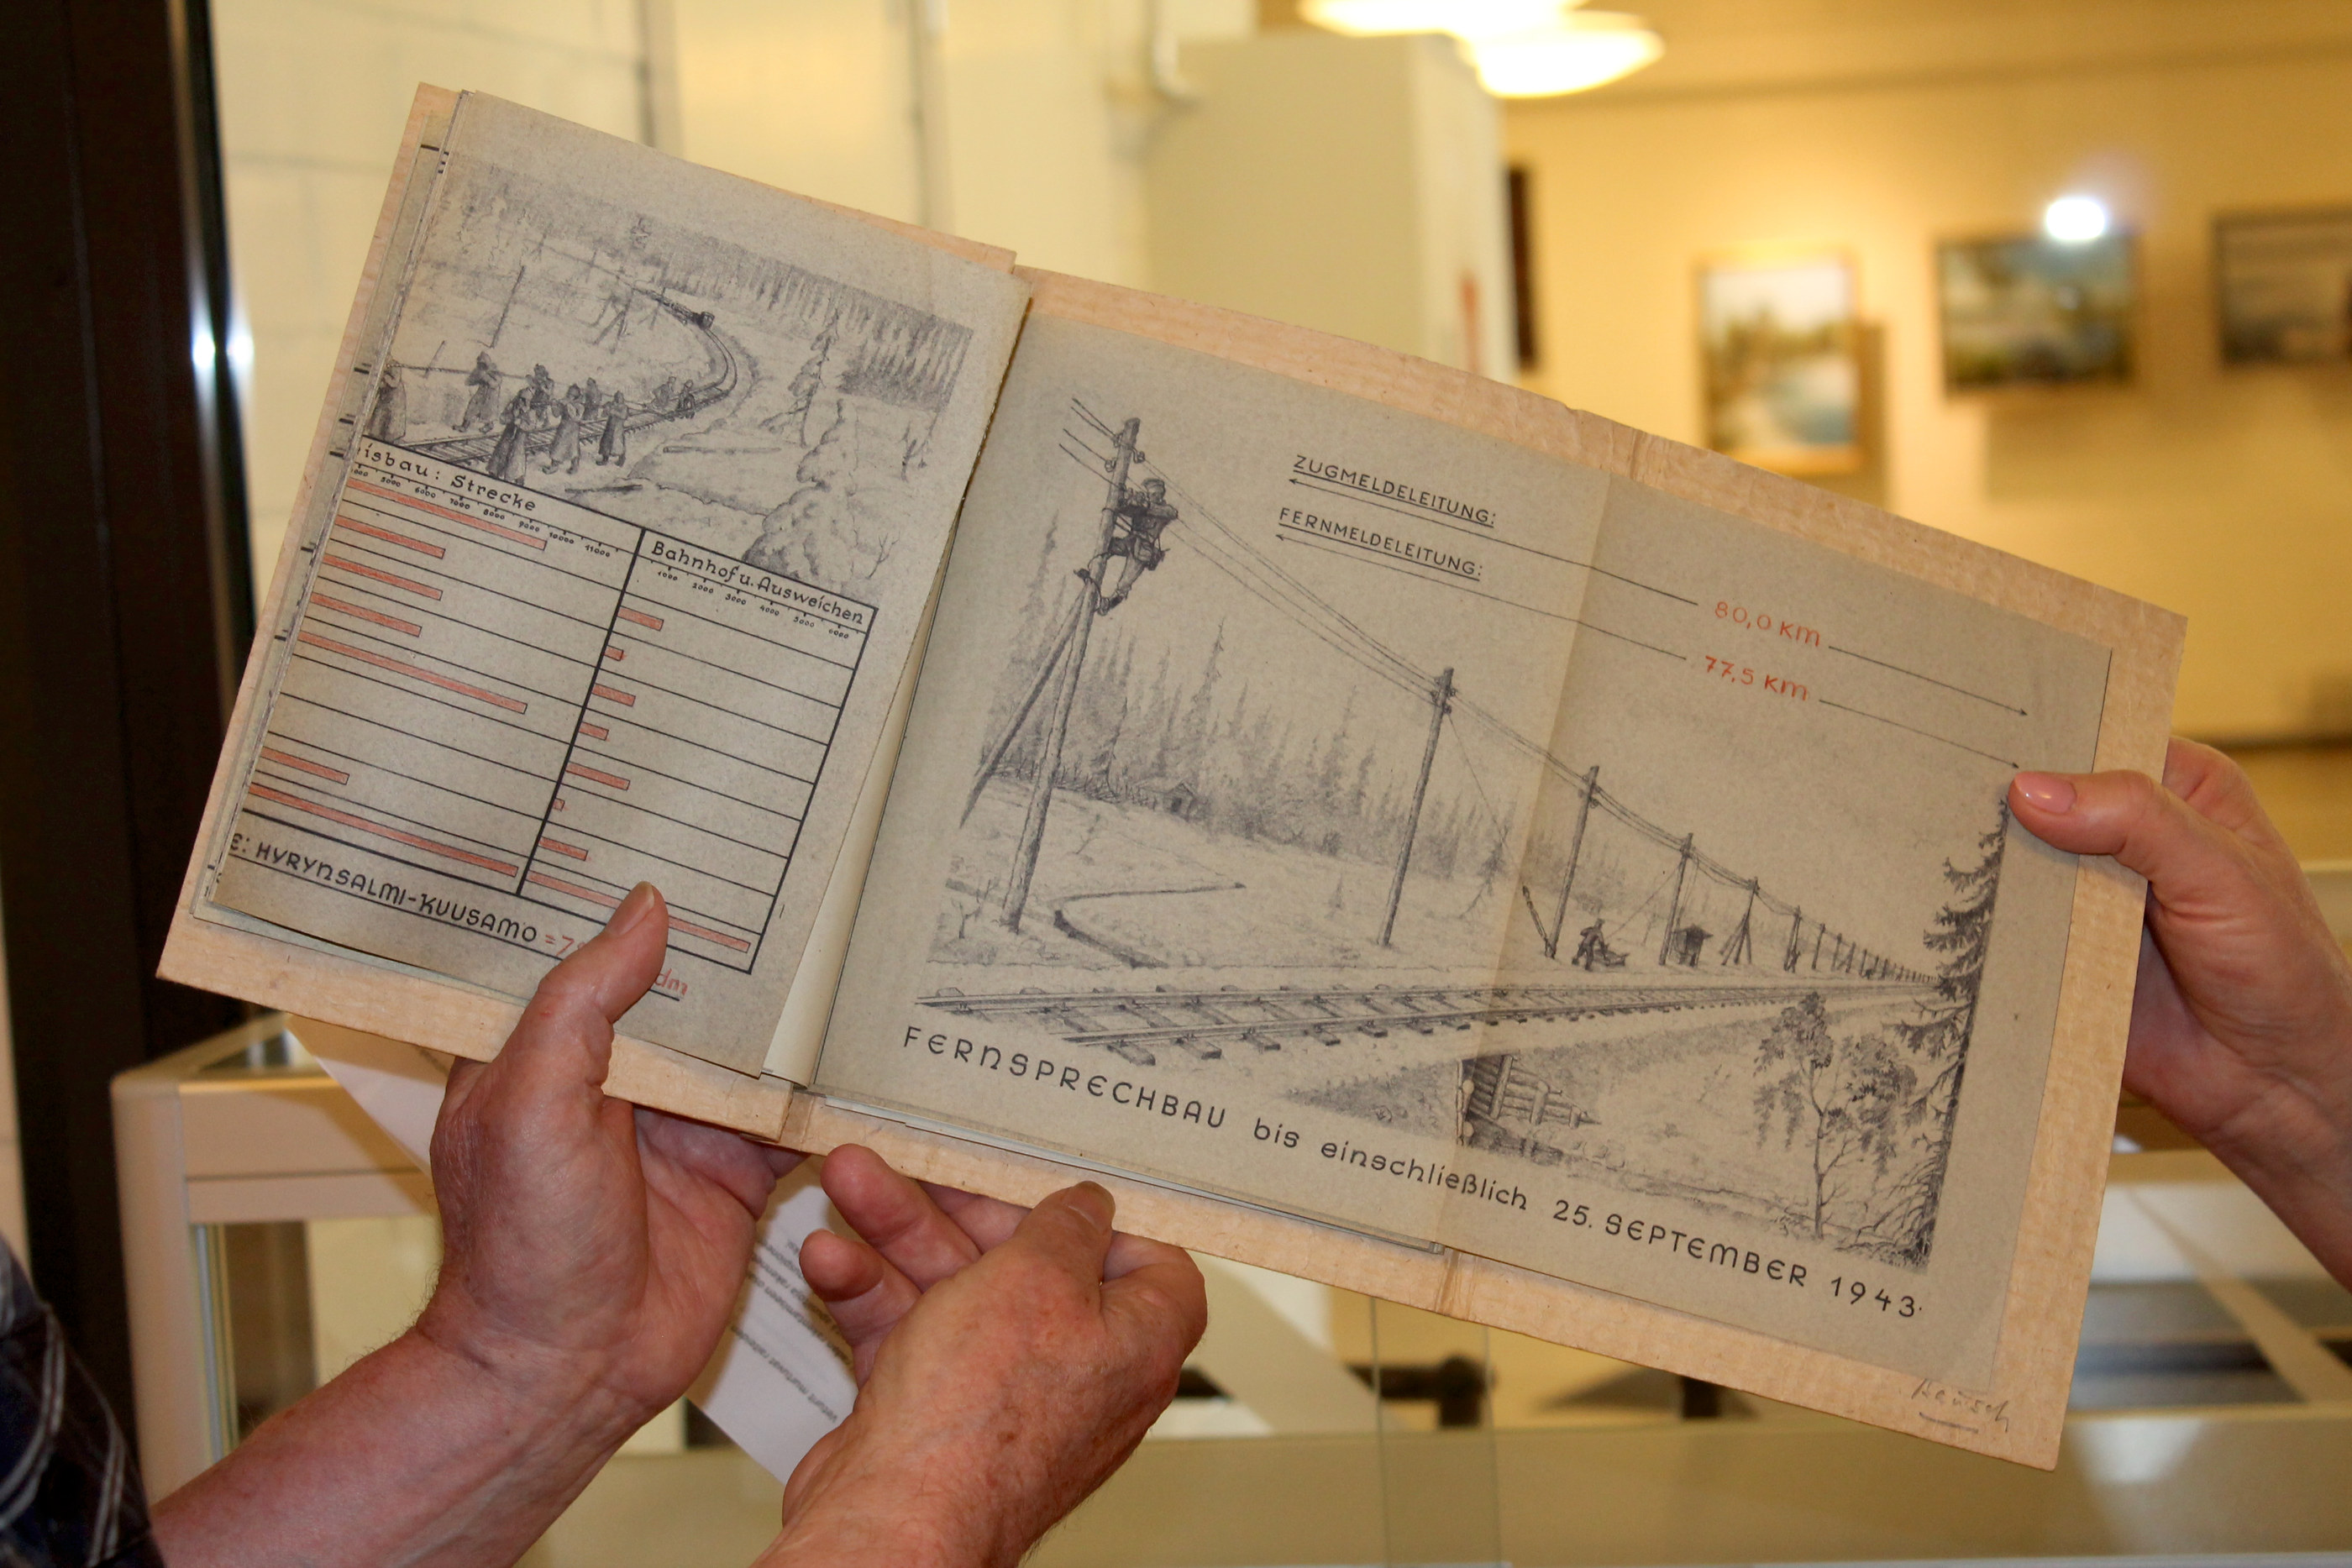 isbau: Strecke
5000 6000 7000 8000 9000 10000 11000
Bahnhof u. Ausweichen
1000 2000 3000 4000 5000 6000
E: HYRYNSALMI-KUUSAMO =7
dm
ZUGMELDELEITUNG:
80,0 KM
FERNMELDELEITUNG:
77,5 KM
FERNSPRECHBAU bis einschließlich 25. SEPTEMBER 1943.